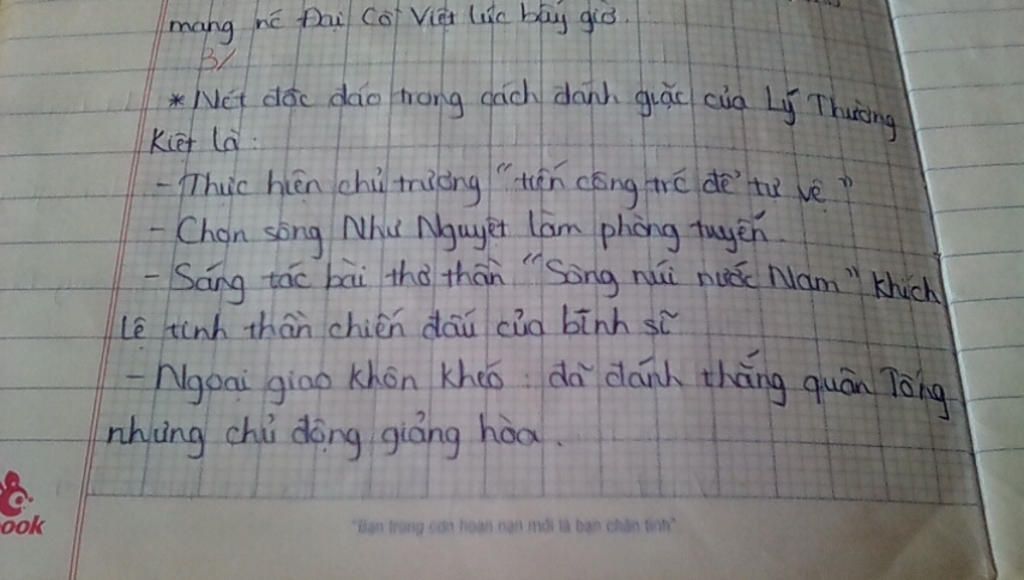 mang nć Đại Cồ Việt lúc bấy giờ.
3/
* Nét độc đáo trong cách đánh giặc của Lý Thường
Kiệt là:
- Thực hiện chủ trương "tiến công trć để tự vệ"
- Chọn sông Như Nguyệt làm phòng tuyến.
- Sáng tác bài thơ thần "Sông núi nước Nam" khích
lệ tinh thần chiến đấu của binh sĩ
- Ngoại giao khôn khéo: đã đánh thắng quân Tống
nhưng chủ động giảng hòa.
ook
"Bạn trong cơn hoạn nạn mới là bạn chân tình"